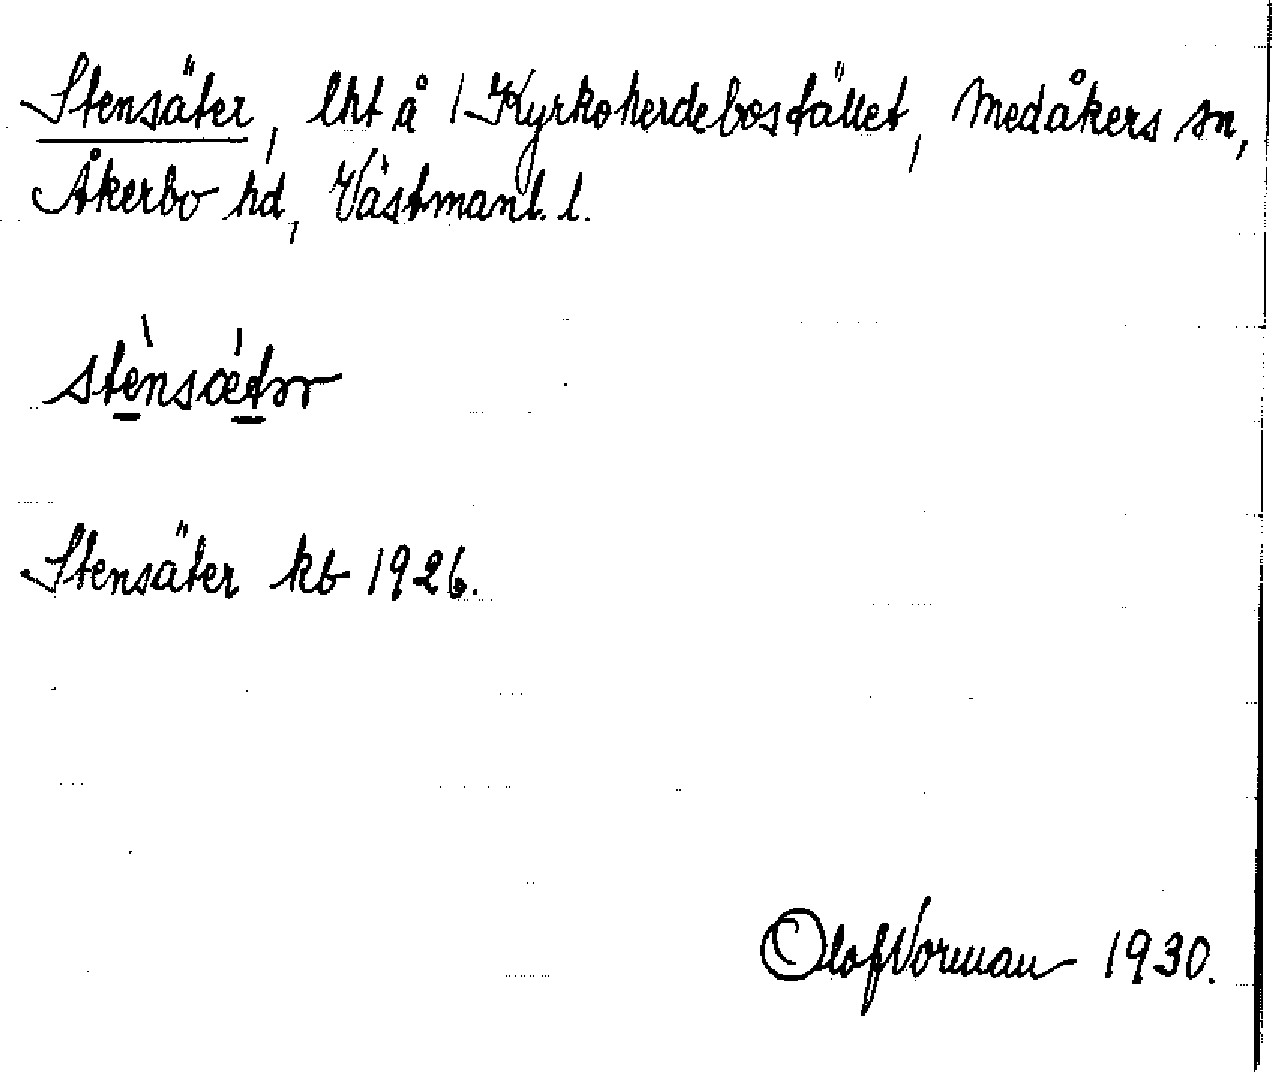 Stensäter, lht å 1 Kyrkoherdebostället, Medåkers sn,
Åkerbo hd, Västmanl. l.
stènsǽtər
Stensäter kb 1926.
Olof Norman 1930.